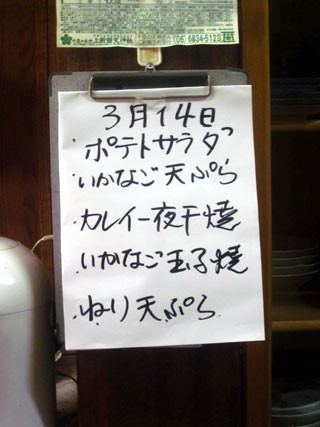 (06) 6834-5123
3月14日
・ポテトサラダ
・いかなご天ぷら
・カレイ一夜干焼
・いかなご玉子焼
・ねり天ぷら